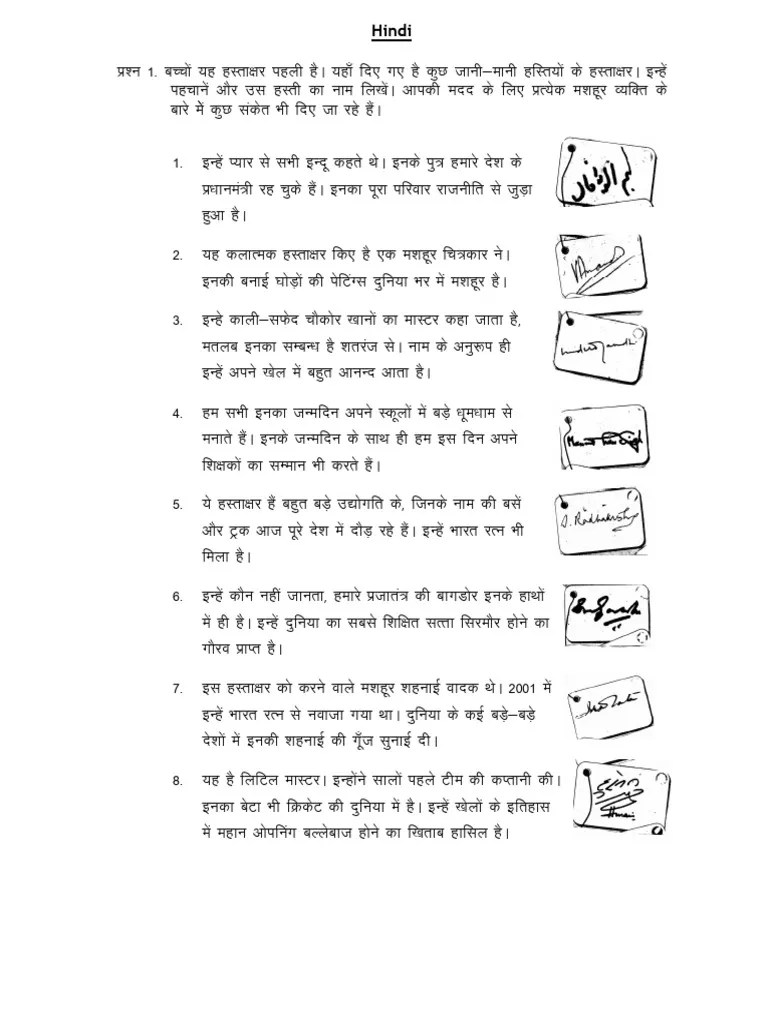 Hindi
प्रश्न 1. बच्चों यह हस्ताक्षर पहली है। यहाँ दिए गए है कुछ जानी–मानी हस्तियों के हस्ताक्षर। इन्हें
पहचानें और उस हस्ती का नाम लिखें। आपकी मदद के लिए प्रत्येक मशहूर व्यक्ति के
बारे में कुछ संकेत भी दिए जा रहे हैं।
1. इन्हें प्यार से सभी इन्दू कहते थे। इनके पुत्र हमारे देश के
प्रधानमंत्री रह चुके हैं। इनका पूरा परिवार राजनीति से जुड़ा
हुआ है।
2. यह कलात्मक हस्ताक्षर किए है एक मशहूर चित्रकार ने।
इनकी बनाई घोड़ों की पेटिंग्स दुनिया भर में मशहूर है।
3. इन्हे काली–सफेद चौकोर खानों का मास्टर कहा जाता है,
मतलब इनका सम्बन्ध है शतरंज से। नाम के अनुरूप ही
इन्हें अपने खेल में बहुत आनन्द आता है।
4. हम सभी इनका जन्मदिन अपने स्कूलों में बड़े धूमधाम से
मनाते हैं। इनके जन्मदिन के साथ ही हम इस दिन अपने
शिक्षकों का सम्मान भी करते हैं।
5. ये हस्ताक्षर हैं बहुत बड़े उद्योगति के, जिनके नाम की बसें
और ट्रक आज पूरे देश में दौड़ रहे हैं। इन्हें भारत रत्न भी
मिला है।
S. Radhakrishn
6. इन्हें कौन नहीं जानता, हमारे प्रजातंत्र की बागडोर इनके हाथों
में ही है। इन्हें दुनिया का सबसे शिक्षित सत्ता सिरमौर होने का
गौरव प्राप्त है।
7. इस हस्ताक्षर को करने वाले मशहूर शहनाई वादक थे। 2001 में
इन्हें भारत रत्न से नवाजा गया था। दुनिया के कई बड़े–बड़े
देशों में इनकी शहनाई की गूँज सुनाई दी।
8. यह है लिटिल मास्टर। इन्होंने सालों पहले टीम की कप्तानी की।
इनका बेटा भी क्रिकेट की दुनिया में है। इन्हें खेलों के इतिहास
में महान ओपनिंग बल्लेबाज होने का खिताब हासिल है।